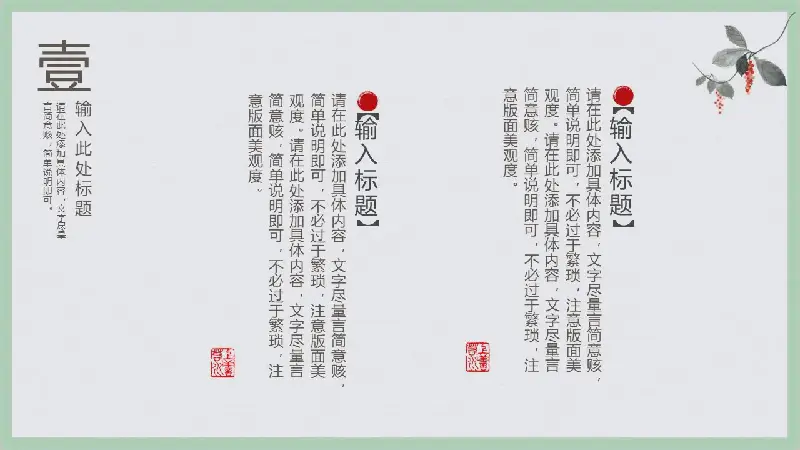 壹
输入此处标题
请在此处添加具体内容，文字尽量
言简意赅，简单说明即可。
【输入标题】
请在此处添加具体内容，文字尽量言简意赅，
简单说明即可，不必过于繁琐，注意版面美
观度。请在此处添加具体内容，文字尽量言
简意赅，简单说明即可，不必过于繁琐，注
意版面美观度。
【输入标题】
请在此处添加具体内容，文字尽量言简意赅，
简单说明即可，不必过于繁琐，注意版面美
观度。请在此处添加具体内容，文字尽量言
简意赅，简单说明即可，不必过于繁琐，注
意版面美观度。